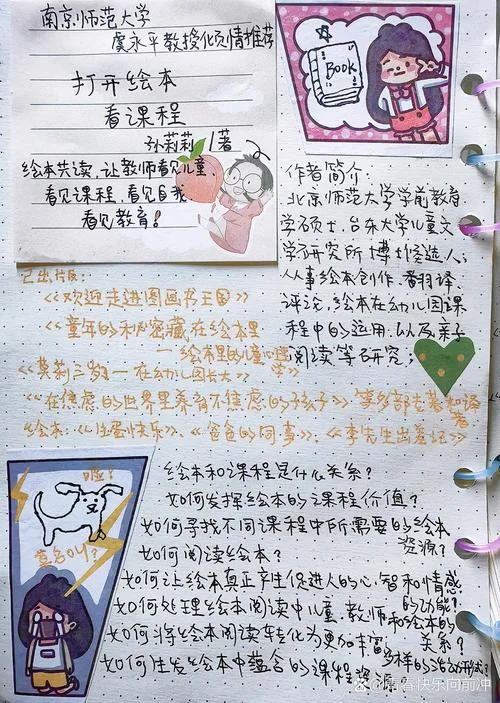 南京师范大学
虞永平教授倾情推荐
打开绘本
看课程
孙莉莉/著
绘本共读,让教师看见儿童、
看见课程,看见自我、
看见教育!
BOOK
作者简介:
北京师范大学学前教育
学硕士,台东大学儿童文
学研究所博士候选人;
从事绘本创作、翻译、
评论,绘本在幼儿园课
程中的运用,以及亲子
阅读等研究;
已出版:
《欢迎走进图画书王国》
《童年的秘密藏在绘本里
—绘本里的儿童心理学》
《莫莉三岁—在幼儿园长大》
《在焦虑的世界里养育不焦虑的孩子》等多部专著和译著
绘本:《生蛋快乐》、《爸爸的同事》、《李先生出差记》
绘本和课程是什么关系?
如何发挥绘本的课程价值?
如何寻找不同课程中所需要的绘本
资源?
如何阅读绘本?
如何让绘本真正产生促进人的心智和情感
的功能?
如何处理绘本阅读中儿童、教师和绘本的
关系?
如何将绘本阅读转化为更加丰富
多样的活动形式?
如何生发绘本中蕴含的课程资源
青春快乐向前冲